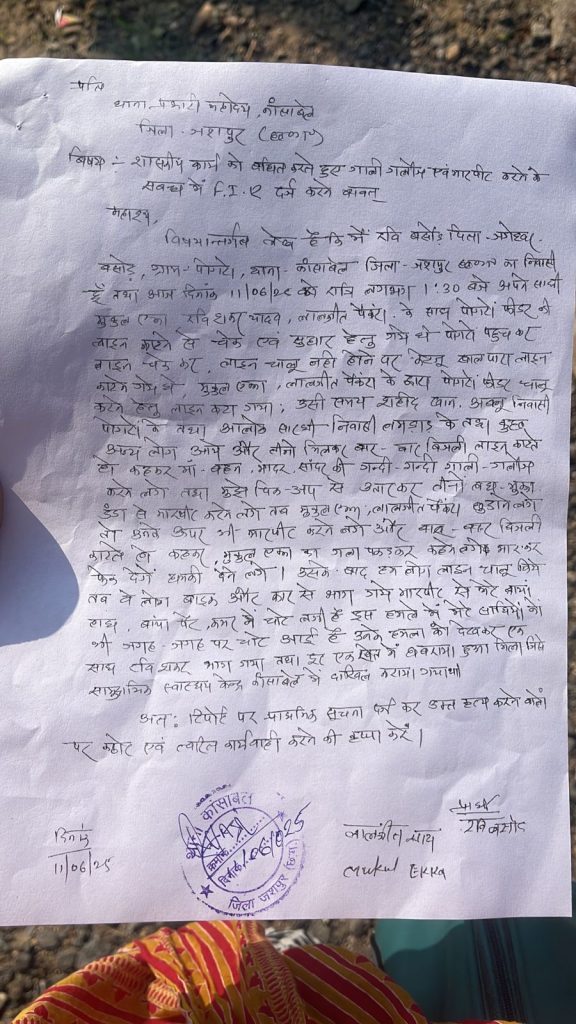 प्रति
थाना प्रभारी महोदय, काँसाबेल
जिला - जशपुर (छ०ग०)
विषय :- शासकीय कार्य को बाधित करते हुए गाली गलौच एवं मारपीट करने के
सबंध में F.I.R दर्ज करने बावत्
महाशय,
विषयान्तर्गत लेख है कि मैं रवि बसोड़ पिता - जगेश्वर
बसोड़, ग्राम - पोंगरो, थाना - काँसाबेल जिला - जशपुर छ०ग० का निवासी
हूँ तथा आज दिनांक 11/06/25 को रात्रि लगभग 1:30 बजे अपने साथी
मुकुल एक्का रविशंकर यादव, लालजीत पैंकरा के साथ पोंगरो फीडर की
लाइन काटने से चेक एवं सुधार हेतु गये थे पोंगरो पहुच कर
लाइन चेक कर, लाइन चालू नही होने पर पारा लाइन
काटने गये थे, मुकुल एक्का, लालजीत पैंकरा के द्वारा पोंगरो फीडर चालू
करने हेतु लाइन काटा गया, उसी समय शाहीद खान, निवासी
पोंगरो के तथा आलोक सारथी - निवासी के तथा कुछ
अन्य लोग आये और तीनो मिलकर बार - बार बिजली लाइन काटते
हो कहकर मां - बहन, मादर, की गन्दी - गन्दी गाली - गलौज
करने लगे तथा मुझे पिक-अप से उतारकर तीनो मुक्का
डंडा से मारपीट करने लगे तब मुकुल एक्का, लालजीत पैंकरा छुड़ाने लगे
तो उनके ऊपर भी मारपीट करने लगे और बार - बार बिजली
काटते हो कहकर, मुकुल एक्का का गला पकड़कर कहने लगे मारकर
फेंक देंगे धमकी देने लगे । उसके बाद हम लोग लाइन चालू किये
तब वे लोग बाइक और कार से भाग गये मारपीट से मेरे बायां
हाथ, बायां पैर, कमर में चोट लगी है इस हमले में मेरे साथियों को
भी जगह - जगह पर चोट आई है उनके हमला को देखकर एक
साथी रविशंकर भाग गया तथा दूर एक खेत में घबराया हुआ मिला जिसे
सामुदायिक स्वास्थ्य केन्द्र काँसाबेल में दाखिल कराया गया था।
अतः रिपोर्ट पर प्राथमिक सूचना दर्ज कर उक्त करने वालों
पर कठोर एवं त्वरित कार्यवाही करने की कृपा करें ।
दिनांक
11/06/25
काँसाबेल
क्रमांक
दिनांक /06/025
जिला जशपुर (छ.ग.)
लालजीत साय
Mukul EKKA
प्रार्थी
रवि बसोड